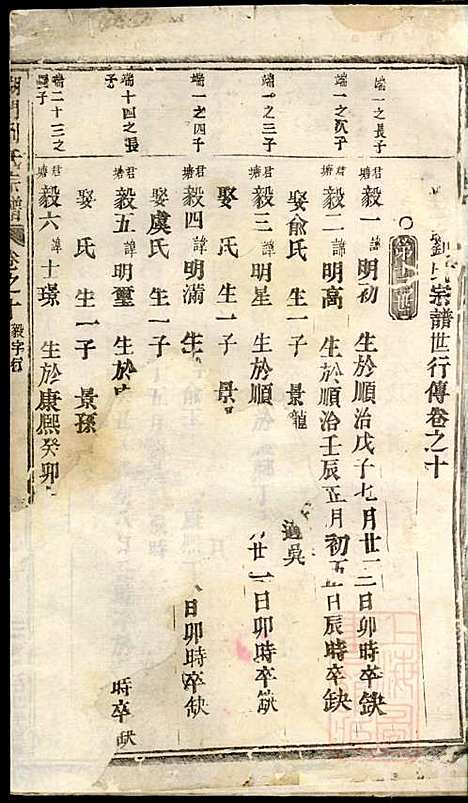 劉氏宗譜世行傳卷之十
端一之長子
君塘 毅一 諱明初 生於順治戊子七月廿二日卯時卒缺
端一之次子
君塘 毅二 諱明高 生於順治壬辰正月初五日辰時卒缺
娶俞氏 生一子 景龍 適吳
端一之三子
君塘 毅三 諱明星 生於順 廿二日卯時卒缺
娶 氏 生一子 景
端一之四子
君塘 毅四 諱明滿 生於順 日卯時卒缺
娶虞氏 生一子
端十四之長子
君塘 毅五 諱明璽 生於 時卒缺
娶 氏 生一子 景孫
端二十三之 子
君塘 毅六 諱士璟 生於康熙癸卯
氏宗譜 卷之十 毅字行